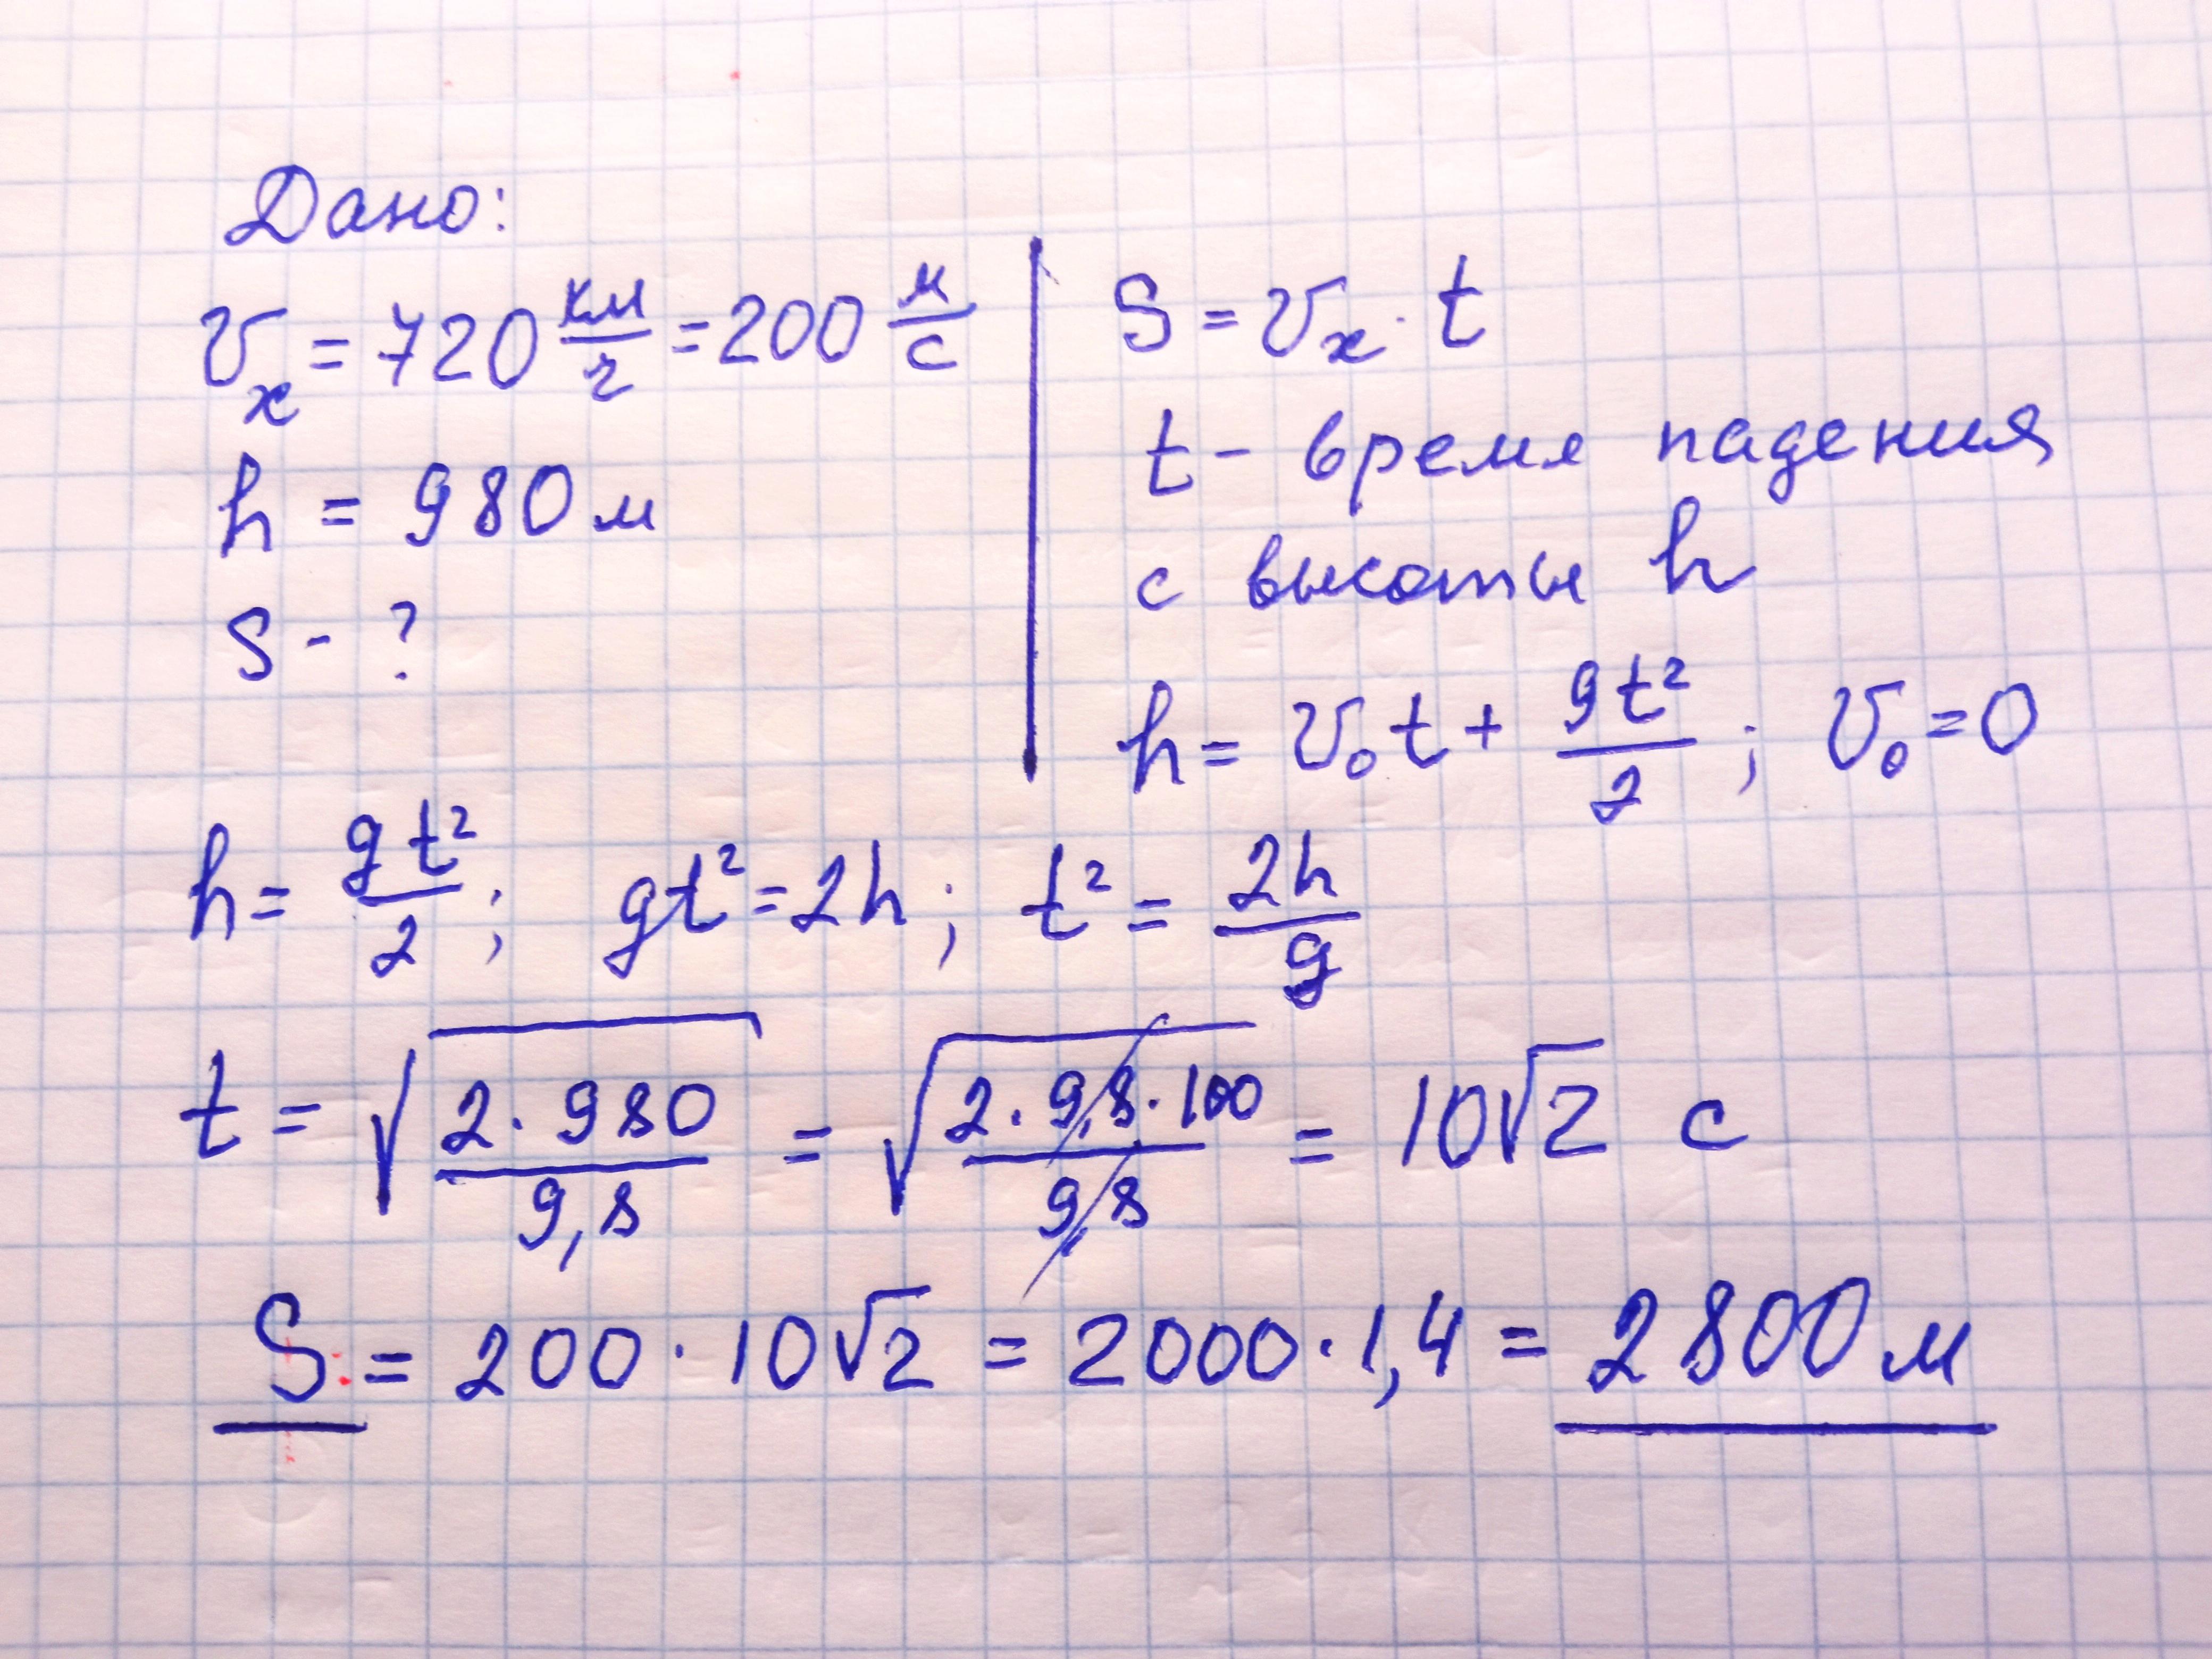 Дано:
υₓ = 720 км/г = 200 м/с
h = 980 м
S - ?
S = υₓ · t
t - время падения
с высоты h
h = υ₀t + gt²/2 ; υ₀ = 0
h = gt²/2 ; gt² = 2h ; t² = 2h/g
t = √(2 · 980/9,8) = √(2 · 9,8 · 100/9,8) = 10√2 с
S = 200 · 10√2 = 2000 · 1,4 = 2800 м